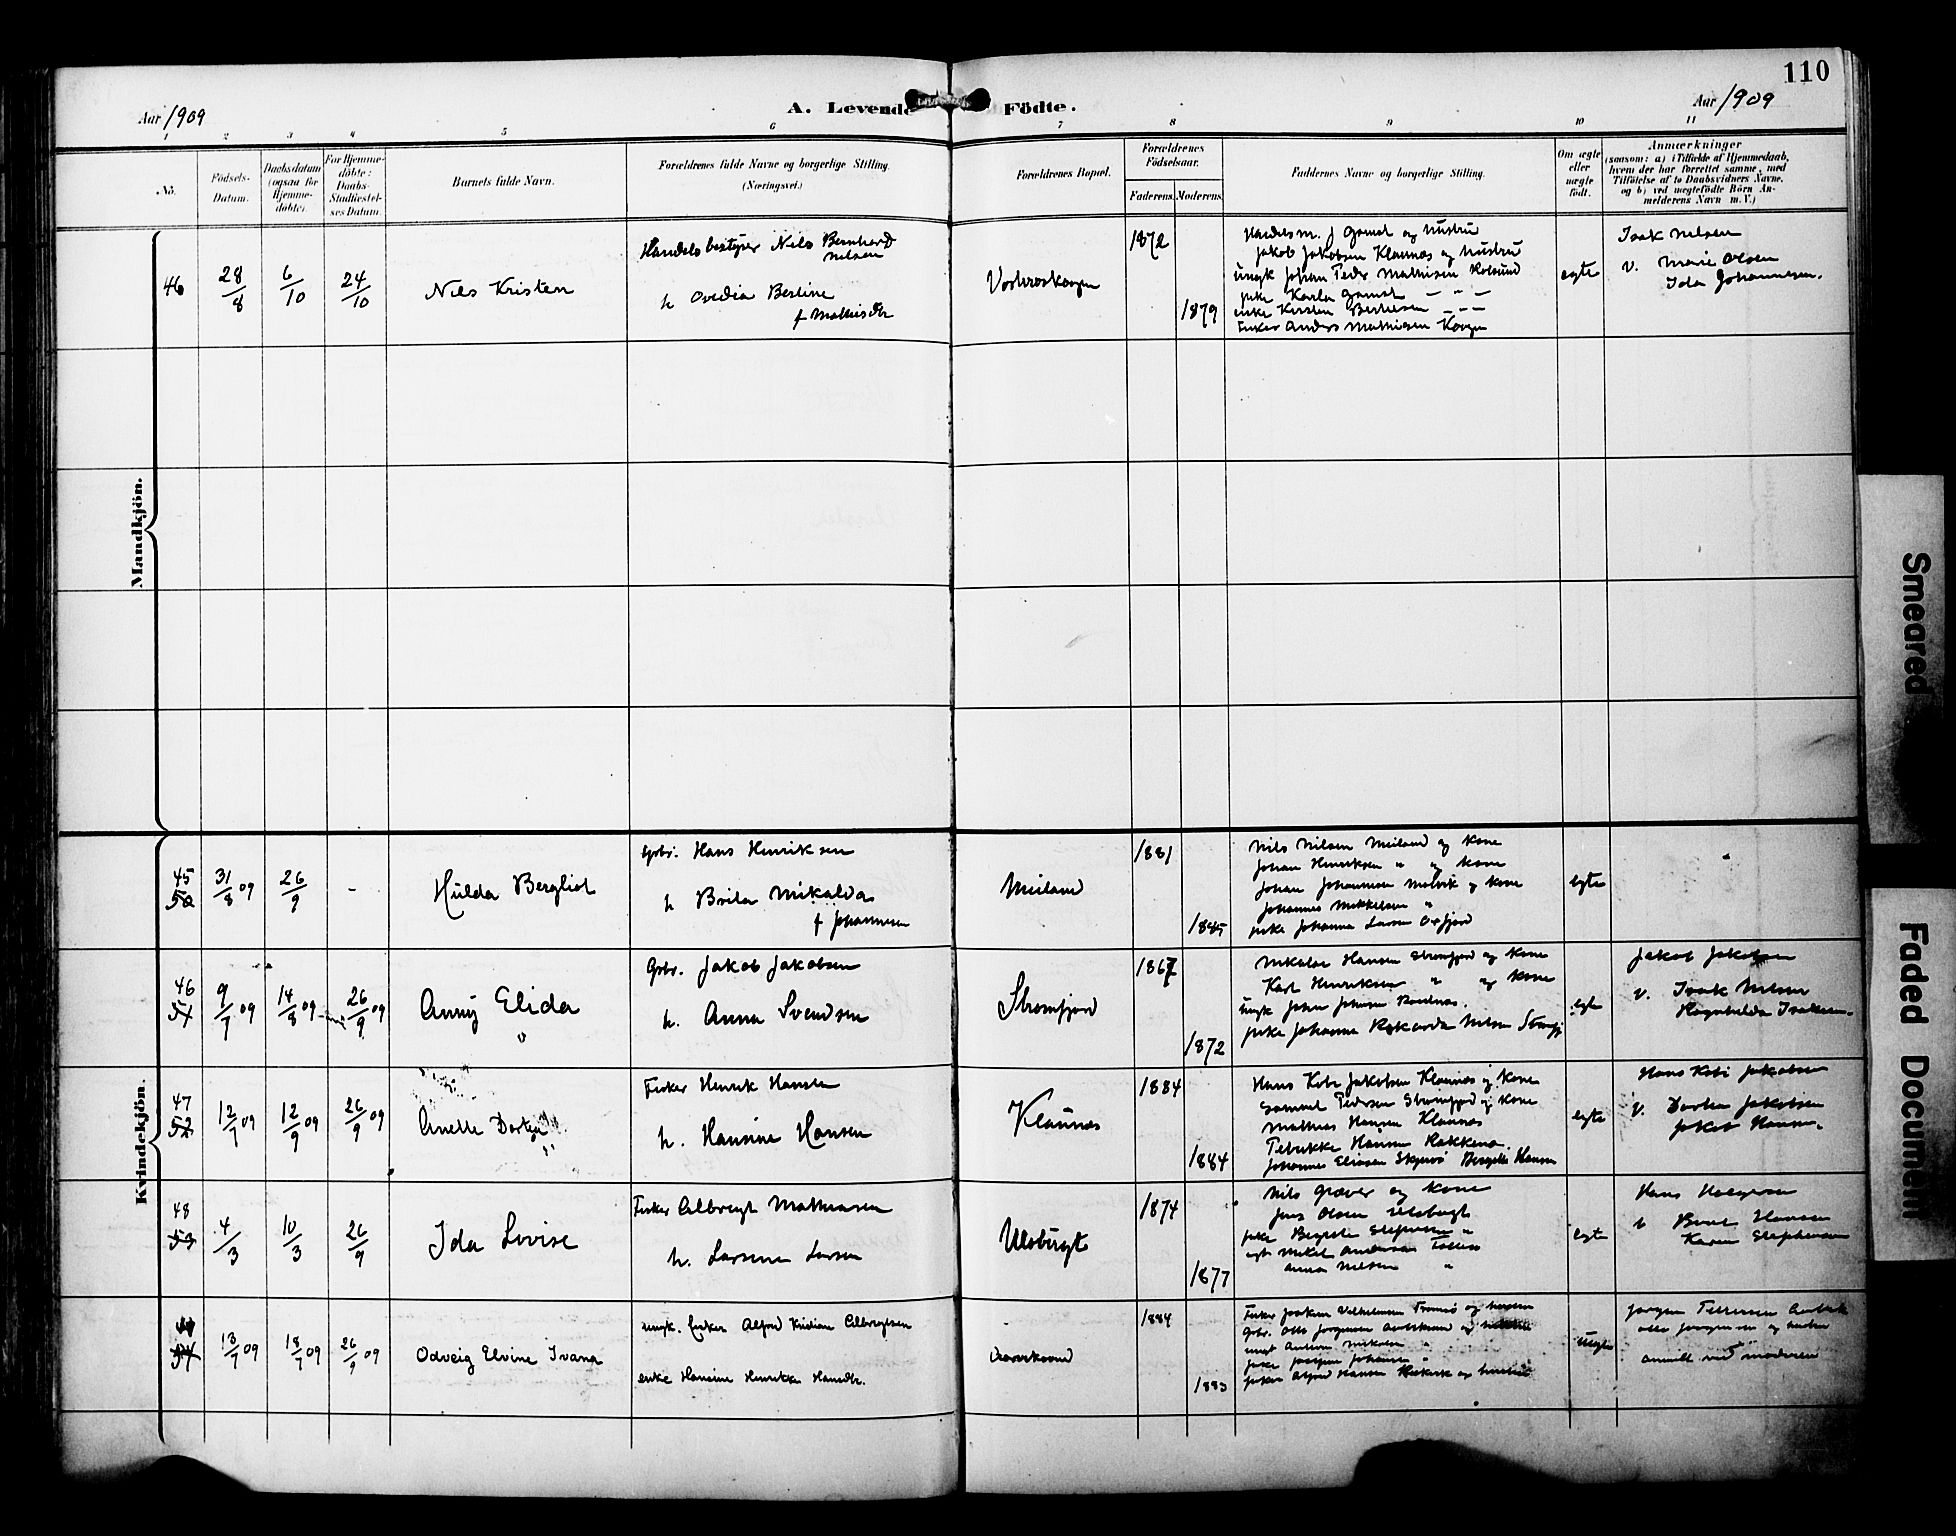 110
Aar 1909
A. Levende Födte.
Aar 1909
1 2 3 4 5 6 7 8 9 10 11
No.
Födsels-
Datum.
Daabsdatum
(ogsaa for
Hjemme-
döbte).
For Hjemme-
döbte:
Daabs-
Stadfæstel-
ses Datum.
Barnets fulde Navn.
Forældrenes fulde Navne og borgerlige Stilling.
(Næringsvei.)
Forældrenes Bopæl.
Forældrenes
Födselsaar.
Faderens. Moderens.
Faddernes Navne og borgerlige Stilling.
Om ægte
eller
uægte
født.
Anmærkninger
(saasom: a) i Tilfælde af Hjemmedaab,
hvem der har forrettet samme, med
Tilföielse af to Daabsvidners Navne,
og b) ved uegtefödte Börn An-
melderens Navn m. V.)
Mandkjön.
46
28/8
6/10
24/10
Nils Kristen
Handelsbestyrer Nils Bernhard
Nilsen
h Ovedia Berline
f Mathisdtr
1872
1879
Handelsm. J Gamst og hustru
Jakob Jakobsen Klaunæs og hustru
ungk Johan Peder Mathisen
pike Karla Gamst — " —
enke Kirsten
Fisker Anders Mathisen
egte
Isak Nilsen
v. Marie Olsen
Ida Johannesen.
Kvindekjön.
45
50
31/8 09
26/9
-
Hulda Bergliot
Grbr. Hans Henriksen
h Brita Mikalda
f Johannesen
Meiland
1881
1845
Nils Nilsen Meiland og kone
Johan Henriksen " og kone
Johan Johannesen Molvik og kone
Johannes Mikkelsen "
pike Johanna Larsen Oxfjord
egte
46
51
9/7 09
14/8 09
26/9 09
Anny Elida
Gbr. Jakob Jakobsen
h. Anna Svendsen
Stromfjord
1867
1872
Nikolai Hansen Stromfjord og kone
Karl Henriksen " og kone
ungk Johan Johnsen
pike Johanna Rikarda Nilsen
egte
Jakob Jakobsen
v. Isak Nilsen
Ragnhilda Isaksen.
47
52
12/7 09
12/9 09
26/9 09
Anette Dortea
Fisker Henrik Hansen
h. Hansine Hansen
Klaunæs
1884
1884
Hans Kobi Jakobsen Klaunæs og kone
Samuel Pedersen Stromfjord og kone
Mathias Hansen Klaunæs
Hansen
Johannes Eliasen Skjervø Hansen
egte
Hans Kobi Jakobsen
v. Dortea Jakobsen
Jakob Hansen.
48
53
4/3
10/3
26/9
Ida Lovise
Fisker Albregt Mathiasen
h. Larsine Larsen
Ulobugt
1874
1877
Nils Græver og kone
Jens Olsen Ulobugt
pike Stephensen "
Mikal Andersen
Anna Nilsen "
egte
Hans
v Hansen
Karen Stephensen
54
13/7 09
18/7 09
26/9 09
Odveig Elvine Ivana
ungk. fisker Alfred Kristian Albregtsen
enke Hansine Henrikke Hansdtr.
1884
1883
Fisker Joakim Vilhelmsen Tromsö og hustru
Gbr. Otto Jørgensen og hustru
ungk Nikolai
pike Johansen "
fisker Alfred Hansen og hustru
uegte
Jørgen
Otto Jørgensen og hustru
anmeldt ved moderen
Smeared
Faded Document